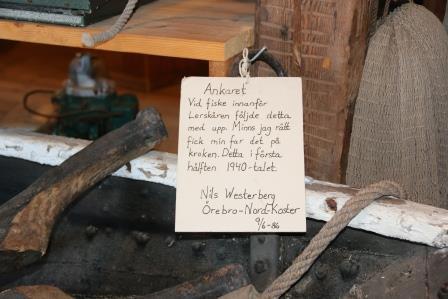 Ankaret
Vid fiske innanför
Lerskären följde detta
med upp. Minns jag rätt
fick min far det på
kroken. Detta i första
hälften 1940-talet.
Nils Westerberg
Örebro-Nord-Koster
9/6-86